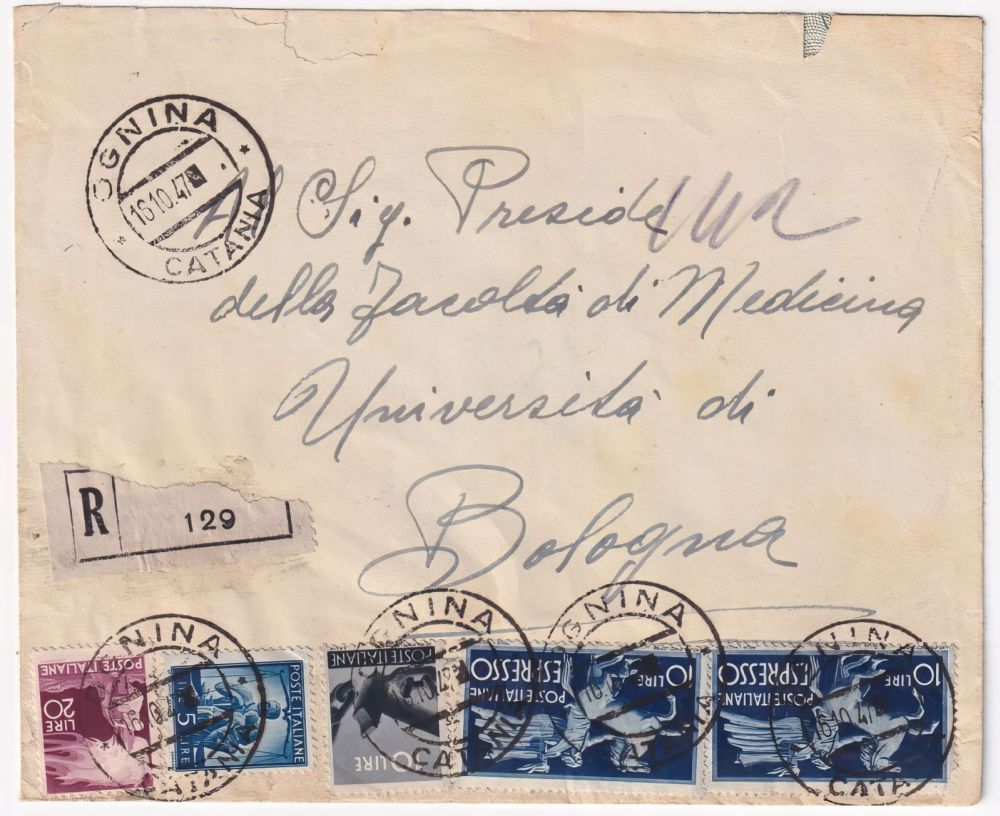 OGNINA
16.10.47
CATANIA
Al Sig. Preside
della Facoltà di Medicina
Università di
Bologna
R 129
POSTE ITALIANE
20 LIRE
POSTE ITALIANE
5 LIRE
POSTE ITALIANE
LIRE
10 LIRE
ESPRESSO
POSTE ITALIANE
10 LIRE
ESPRESSO
POSTE ITALIANE
GNINA
CATANIA
OGNINA
CATANIA
OGNINA
NINA
16.10.47
CATA